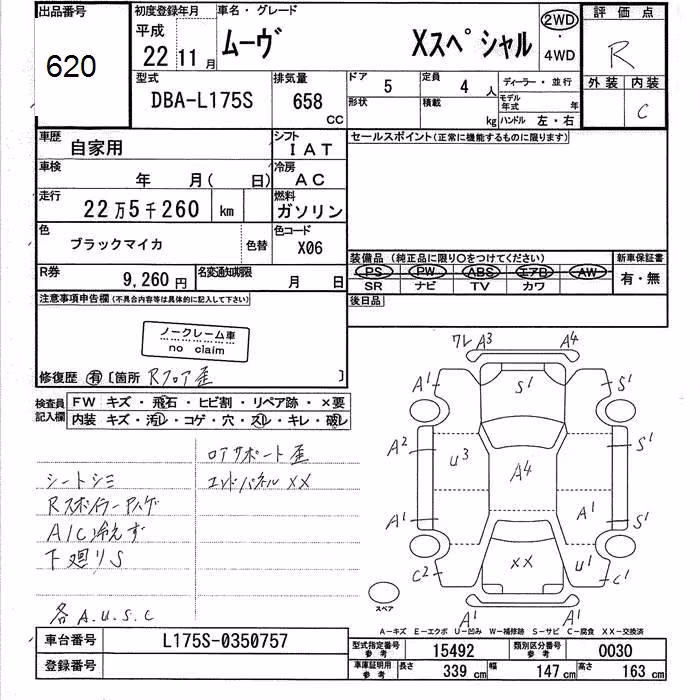 出品番号
620
初度登録年月
平成
22 11 月
車名・グレード
ムーヴ Xスペシャル
2WD
・
4WD
評価点
R
外装 内装
C
型式
DBA-L175S
排気量
658
CC
ドア
5
定員
4 人
形状
積載
kg
ディーラー・並行
モデル
年式 年
ハンドル 左・右
車歴
自家用
シフト
IAT
車検
年 月( 日)
冷房
AC
走行
22万5千260 km
燃料
ガソリン
色
ブラックマイカ
色替
色コード
X06
R券
9,260 円
名変通知期限
月 日
セールスポイント(正常に機能するものに限ります)
装備品(純正品に限り○をつけてください)
PS PW ABS エアB AW
SR ナビ TV カワ
新車保証書
有・無
後日品
注意事項申告欄(不具合内容等は具体的に記入して下さい)
ノークレーム車
no claim
修復歴 有 〔箇所 Rフロア歪 〕
検査員
記入欄
FW キズ・飛石・ヒビ割・リペア跡・×要
内装 キズ・汚レ・コゲ・穴・スレ・キレ・破レ
ロアサポート歪
シートシミ
エンドパネルXX
Rスポイラーハゲ
A/C冷えず
下廻りS
各A.U.S.C
ワレ A3 A4
A1 S1 S1
A2 U3 A4 S1
A1 A1 S1
C2 XX U1 C1
A1 A1
スペア
A-キズ E-エクボ U-凹み W-補修跡 S-サビ C-腐食 XX-交換済
車台番号
L175S-0350757
登録番号
型式指定番号
参考
15492
類別区分番号
参考
0030
車庫証明用
参考
長さ 339 cm 幅 147 cm 高さ 163 cm